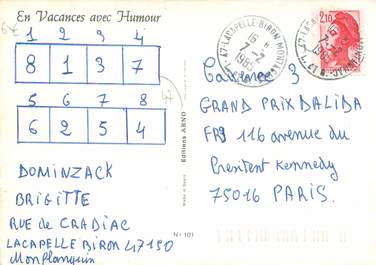 En Vacances avec Humour
1 2 3 4
8 1 3 7
5 6 7 8
6 2 5 4
DOMINZACK
BRIGITTE
RUE de CRADIAC
LACAPELLE BIRON 47150
Monflanquin
Editions ARNO
N° 101
2,10
47-LACAPELLE-BIRON
16 H
7-2
3
GRAND PRIX DALIDA
FR3 116 avenue du
President Kennedy
75016 PARIS.